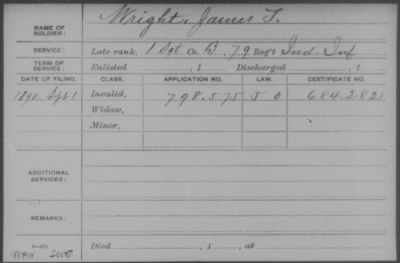 NAME OF SOLDIER: Wright, James T.
SERVICE: Late rank, 1 Sgt Co. B, 79 Reg't Ind. Inf
TERM OF SERVICE: Enlisted , 1 Discharged , 1
DATE OF FILING. CLASS. APPLICATION NO. LAW. CERTIFICATE NO.
1890 Sept 1 Invalid, 798.575 J O 684.282
Widow,
Minor,
ADDITIONAL SERVICES:
REMARKS:
Died , 1 , at